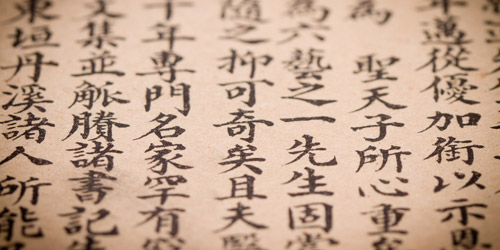 年邁從優加銜以示恩
為 聖天子所心重
為六藝之一先生固當
隨之抑可奇矣且夫醫
十年專門名家罕有
文集並脈賸諸書記
東垣丹溪諸人所能